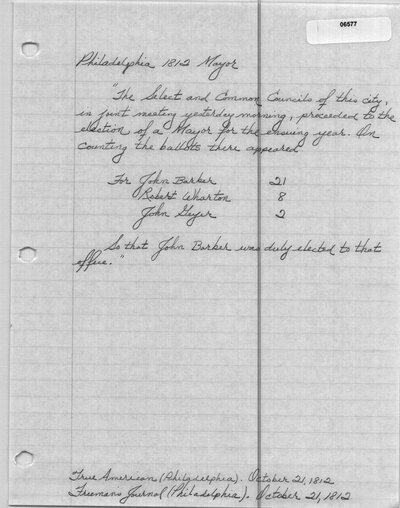 06577
Philadelphia 1812 Mayor
"The Select and Common Councils of this city,
in joint meeting yesterday morning, proceeded to the
election of a Mayor for the ensuing year. On
counting the ballots there appeared
For John Barker 21
Robert Wharton 8
John Geyer 2
So that John Barker was duly elected to that
office."
True American (Philadelphia). October 21, 1812
Freemans Journal (Philadelphia). October 21, 1812